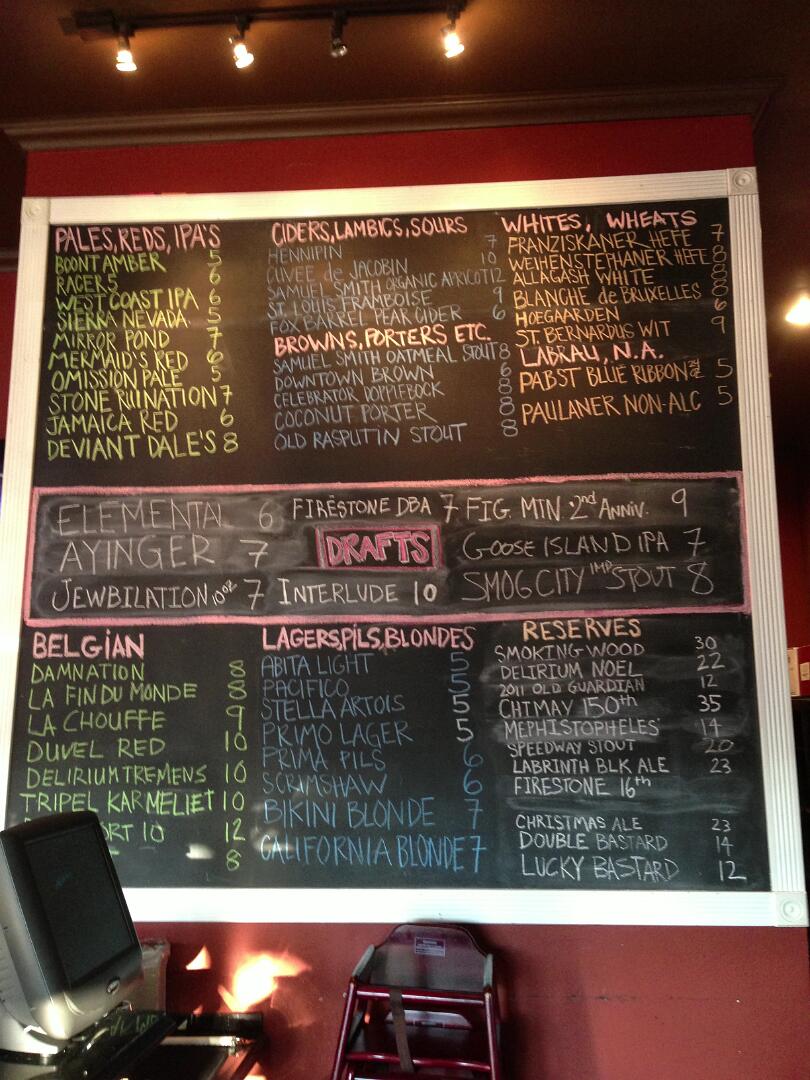 PALES, REDS, IPA'S
BOONT AMBER 5
RACER 5 6
WEST COAST IPA 6
SIERRA NEVADA 5
MIRROR POND 7
MERMAID'S RED 6
OMISSION PALE 5
STONE RUINATION 7
JAMAICA RED 6
DEVIANT DALE'S 8
CIDERS, LAMBICS, SOURS
HENNIPIN 7
CUVEE de JACOBIN 10
SAMUEL SMITH ORGANIC APRICOT 12
ST. LOUIS FRAMBOISE 9
FOX BARREL PEAR CIDER 6
BROWNS, PORTERS ETC.
SAMUEL SMITH OATMEAL STOUT 8
DOWNTOWN BROWN 6
CELEBRATOR DOPPLEBOCK 8
COCONUT PORTER 8
OLD RASPUTIN STOUT 8
WHITES, WHEATS
FRANZISKANER HEFE 7
WEIHENSTEPHANER HEFE 8
ALLAGASH WHITE 8
BLANCHE de BRUXELLES 8
HOEGAARDEN 6
ST. BERNARDUS WIT 9
LABRAU, N.A.
PABST BLUE RIBBON 24 oz 5
PAULANER NON-ALC 5
ELEMENTAL 6
AYINGER 7
JEWBILATION 10oz 7
FIRESTONE DBA 7
DRAFTS
INTERLUDE 10
FIG. MTN. 2nd ANNIV. 9
GOOSE ISLAND IPA 7
SMOG CITY IMP STOUT 8
BELGIAN
DAMNATION 8
LA FIN DU MONDE 8
LA CHOUFFE 9
DUVEL RED 10
DELIRIUM TREMENS 10
TRIPEL KARMELIET 10
ORT 10 12
8
LAGERS, PILS, BLONDES
ABITA LIGHT 5
PACIFICO 5
STELLA ARTOIS 5
PRIMO LAGER 5
PRIMA PILS 6
SCRIMSHAW 6
BIKINI BLONDE 7
CALIFORNIA BLONDE 7
RESERVES
SMOKING WOOD 30
DELIRIUM NOEL 22
2011 OLD GUARDIAN 12
CHIMAY 150th 35
MEPHISTOPHELES' 14
SPEEDWAY STOUT 20
LABRINTH BLK ALE 23
FIRESTONE 16th
CHRISTMAS ALE 23
DOUBLE BASTARD 14
LUCKY BASTARD 12